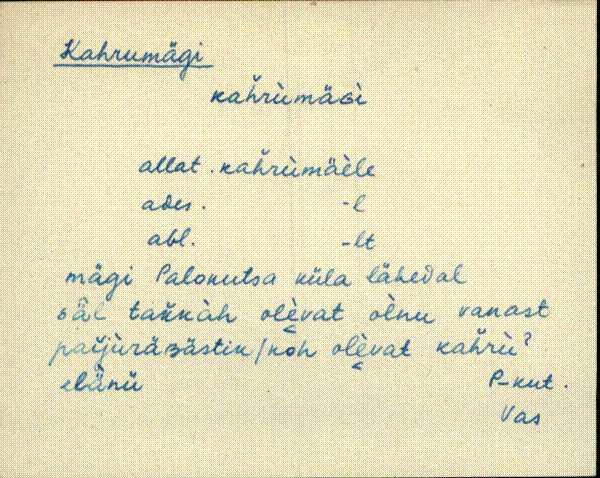 Kahrumägi
kah̆rùmäGì
allat. kah̆rùmäèle
ades. -l
abl. -lt
mägi Palokutsa küla lähedal
säl takkàh olèvat òlnu vanast
paĭjùräʙästik/koh olèvat kah̆rùˀ
elänü P-kut.
Vas